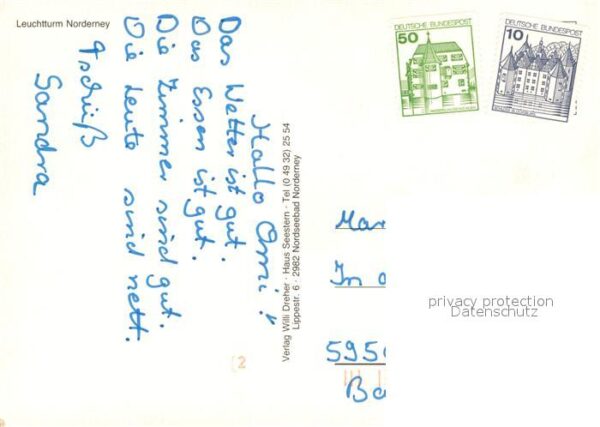 Leuchtturm Norderney
Hallo Omi!
Das Wetter ist gut.
Das Essen ist gut.
Die Zimmer sind gut.
Die Leute sind nett.
Tschüß
Sandra
Verlag Willi Dreher · Haus Seestern · Tel (0 49 32) 25 54
Lippestr. 6 · 2982 Nordseebad Norderney
DEUTSCHE BUNDESPOST
50
DEUTSCHE BUNDESPOST
10
Mar
In
595
Ba
privacy protection
Datenschutz
(2